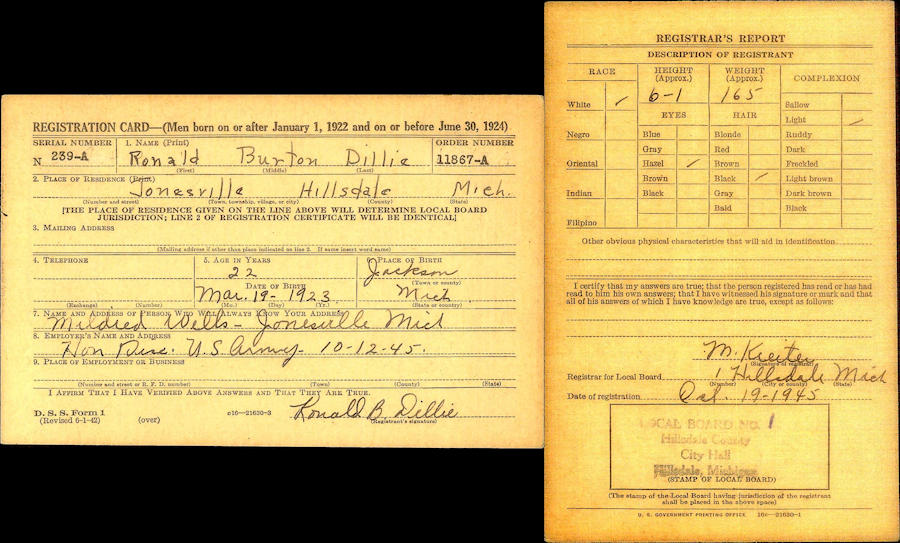 REGISTRATION CARD—(Men born on or after January 1, 1922 and on or before June 30, 1924)
SERIAL NUMBER 1. NAME (Print) ORDER NUMBER
N 239-A Ronald Burton Dillie 11867-A
(First) (Middle) (Last)
2. PLACE OF RESIDENCE (Print)
Jonesville Hillsdale Mich.
(Number and street) (Town, township, village, or city) (County) (State)
[THE PLACE OF RESIDENCE GIVEN ON THE LINE ABOVE WILL DETERMINE LOCAL BOARD
JURISDICTION; LINE 2 OF REGISTRATION CERTIFICATE WILL BE IDENTICAL]
3. MAILING ADDRESS
(Mailing address if other than place indicated on line 2. If same insert word same)
4. TELEPHONE 5. AGE IN YEARS 6. PLACE OF BIRTH
22 Jackson
DATE OF BIRTH (Town or county)
Mar. 19- 1923 Mich
(Exchange) (Number) (Mo.) (Day) (Yr.) (State or country)
7. NAME AND ADDRESS OF PERSON WHO WILL ALWAYS KNOW YOUR ADDRESS
Mildred Wells - Jonesville Mich
8. EMPLOYER'S NAME AND ADDRESS
Hon Disc. U.S. Army - 10-12-45.
9. PLACE OF EMPLOYMENT OR BUSINESS
(Number and street or R. F. D. number) (Town) (County) (State)
I AFFIRM THAT I HAVE VERIFIED ABOVE ANSWERS AND THAT THEY ARE TRUE.
D. S. S. Form 1 c16—21630-3 Ronald B. Dillie
(Revised 6-1-42) (over) (Registrant's signature)
REGISTRAR'S REPORT
DESCRIPTION OF REGISTRANT
RACE HEIGHT (Approx.) WEIGHT (Approx.) COMPLEXION
White ✓ 6-1 165 Sallow
EYES HAIR Light ✓
Negro Blue Blonde Ruddy
Gray Red Dark
Oriental Hazel ✓ Brown Freckled
Brown Black ✓ Light brown
Indian Black Gray Dark brown
Bald Black
Filipino
Other obvious physical characteristics that will aid in identification
I certify that my answers are true; that the person registered has read or has had
read to him his own answers; that I have witnessed his signature or mark and that
all of his answers of which I have knowledge are true, except as follows:
M.
(Signature of registrar)
Registrar for Local Board 1 Hillsdale Mich
(Number) (City or county) (State)
Date of registration Oct. 19-1945
LOCAL BOARD NO. 1
Hillsdale County
City Hall
Hillsdale, Michigan
(STAMP OF LOCAL BOARD)
(The stamp of the Local Board having jurisdiction of the registrant
shall be placed in the above space)
U. S. GOVERNMENT PRINTING OFFICE 16c—21630-1